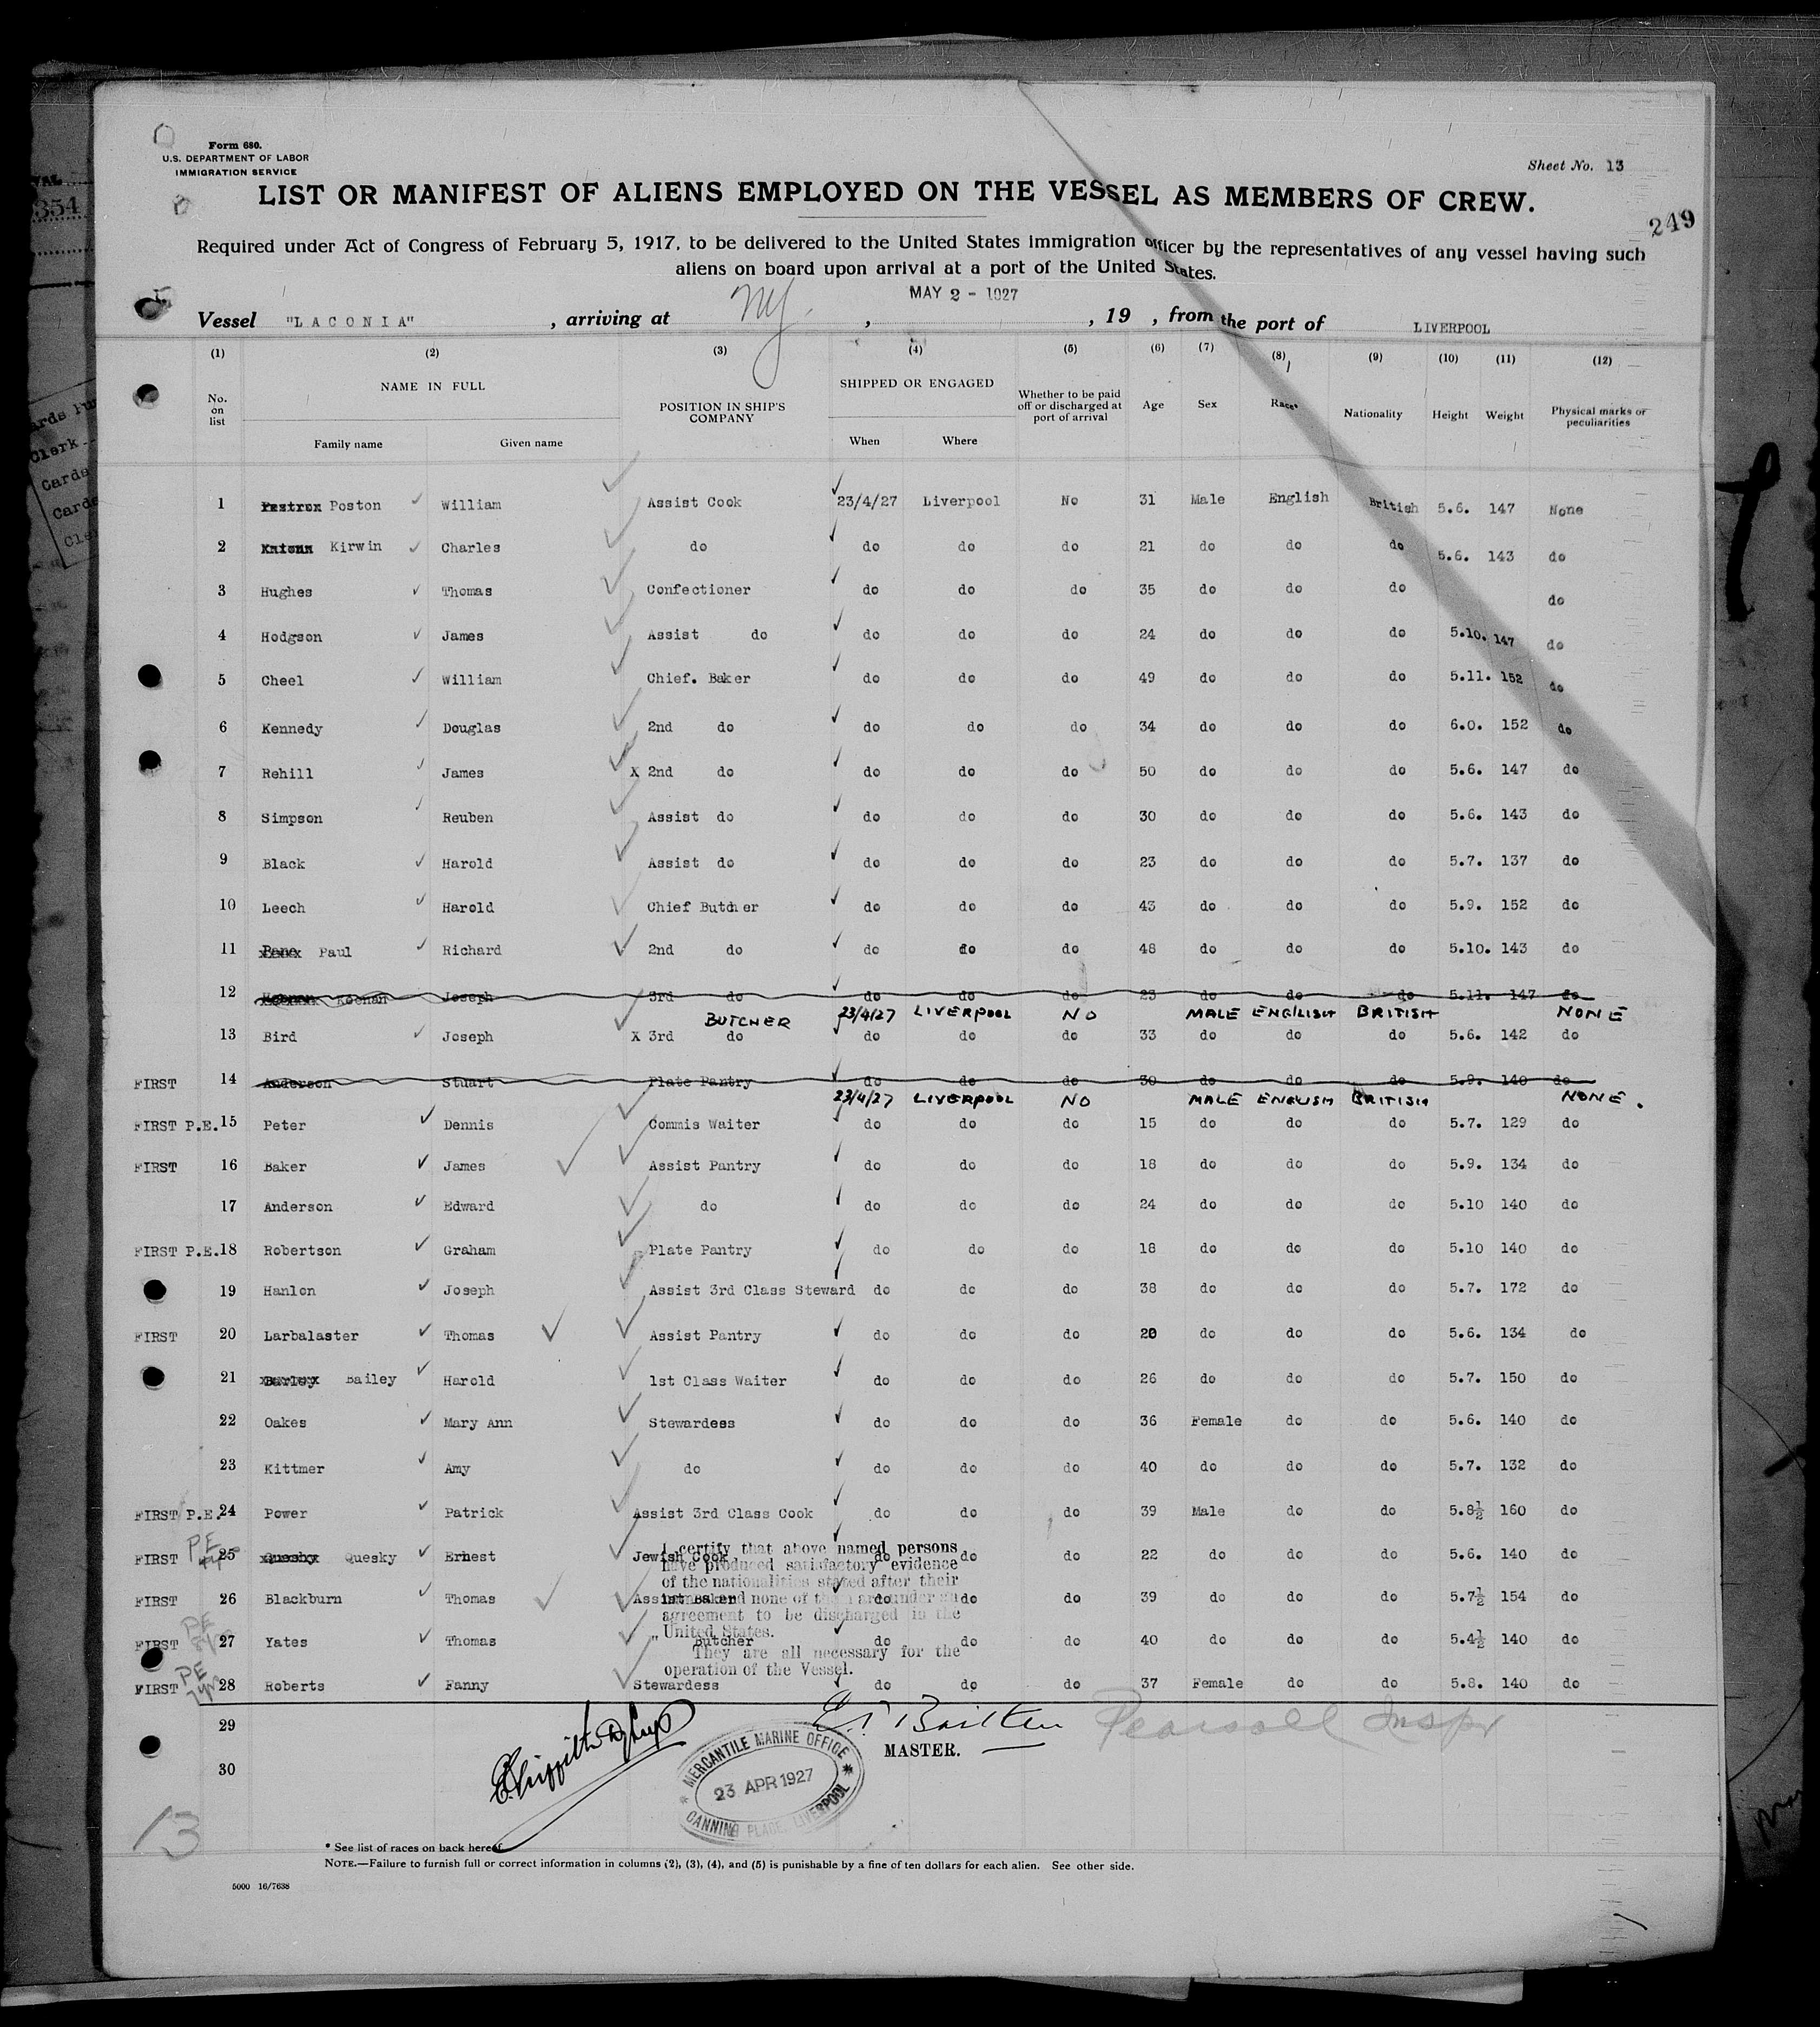 Form 680.
U.S. DEPARTMENT OF LABOR
IMMIGRATION SERVICE
Sheet No. 13
LIST OR MANIFEST OF ALIENS EMPLOYED ON THE VESSEL AS MEMBERS OF CREW.
249
Required under Act of Congress of February 5, 1917, to be delivered to the United States Immigration officer by the representatives of any vessel having such
aliens on board upon arrival at a port of the United States.
MAY 2 - 1927
Vessel "LACONIA" , arriving at NY. , , 19 , from the port of LIVERPOOL
(1) (2) (3) (4) (5) (6) (7) (8) (9) (10) (11) (12)
No. on list NAME IN FULL Family name Given name POSITION IN SHIP'S COMPANY SHIPPED OR ENGAGED When Where Whether to be paid off or discharged at port of arrival Age Sex Race* Nationality Height Weight Physical marks or peculiarities
1 Poston William Assist Cook 23/4/27 Liverpool No 31 Male English British 5.6. 147 None
2 Kirwin Charles do do do do 21 do do do 5.6. 143 do
3 Hughes Thomas Confectioner do do do 35 do do do do
4 Hodgson James Assist do do do do 24 do do do 5.10. 147 do
5 Cheel William Chief. Baker do do do 49 do do do 5.11. 152 do
6 Kennedy Douglas 2nd do do do do 34 do do do 6.0. 152 do
7 Rehill James X 2nd do do do do 50 do do do 5.6. 147 do
8 Simpson Reuben Assist do do do do 30 do do do 5.6. 143 do
9 Black Harold Assist do do do do 23 do do do 5.7. 137 do
10 Leech Harold Chief Butcher do do do 43 do do do 5.9. 152 do
11 Paul Richard 2nd do do do do 48 do do do 5.10. 143 do
12 Keenan Joseph 3rd do do do do 23 do do do 5.11. 147 do
BUTCHER 23/4/27 LIVERPOOL NO MALE ENGLISH BRITISH NONE
13 Bird Joseph X 3rd do do do do 33 do do do 5.6. 142 do
FIRST 14 Anderson Stuart Plate Pantry do do do 30 do do do 5.9. 140 do
23/4/27 LIVERPOOL NO MALE ENGLISH BRITISH NONE.
FIRST P.E. 15 Peter Dennis Commis Waiter do do do 15 do do do 5.7. 129 do
FIRST 16 Baker James Assist Pantry do do do 18 do do do 5.9. 134 do
17 Anderson Edward do do do do 24 do do do 5.10 140 do
FIRST P.E. 18 Robertson Graham Plate Pantry do do do 18 do do do 5.10 140 do
19 Hanlon Joseph Assist 3rd Class Steward do do do 38 do do do 5.7. 172 do
FIRST 20 Larbalaster Thomas Assist Pantry do do do 20 do do do 5.6. 134 do
21 Barley Bailey Harold 1st Class Waiter do do do 26 do do do 5.7. 150 do
22 Oakes Mary Ann Stewardess do do do 36 Female do do 5.6. 140 do
23 Kittmer Amy do do do do 40 do do do 5.7. 132 do
FIRST P.E. 24 Power Patrick Assist 3rd Class Cook do do do 39 Male do do 5.8½ 160 do
FIRST PE 25 Quesky Ernest Jewish Cook do do do 22 do do do 5.6. 140 do
FIRST 26 Blackburn Thomas Assist Baker do do do 39 do do do 5.7½ 154 do
FIRST PE 27 Yates Thomas " Butcher do do do 40 do do do 5.4½ 140 do
FIRST PE 28 Roberts Fanny Stewardess do do do 37 Female do do 5.8. 140 do
I certify that above named persons
have produced satisfactory evidence
of the nationalities stated after their
names and none of them are under an
agreement to be discharged in the
United States.
They are all necessary for the
operation of the Vessel.
29
30
MASTER.
Pearsall Inspr
MERCANTILE MARINE OFFICE
23 APR 1927
CANNING PLACE, LIVERPOOL
13
* See list of races on back hereof.
NOTE.—Failure to furnish full or correct information in columns (2), (3), (4), and (5) is punishable by a fine of ten dollars for each alien. See other side.
5000 16/7638